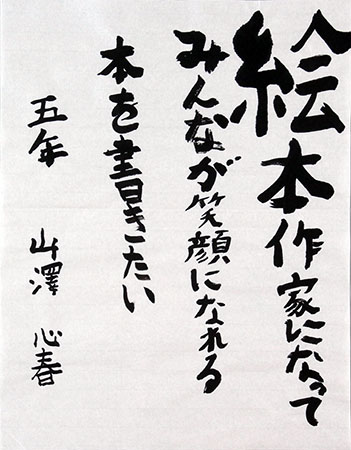 絵本作家になって
みんなが笑顔になれる
本を書きたい
五年 山澤 心春